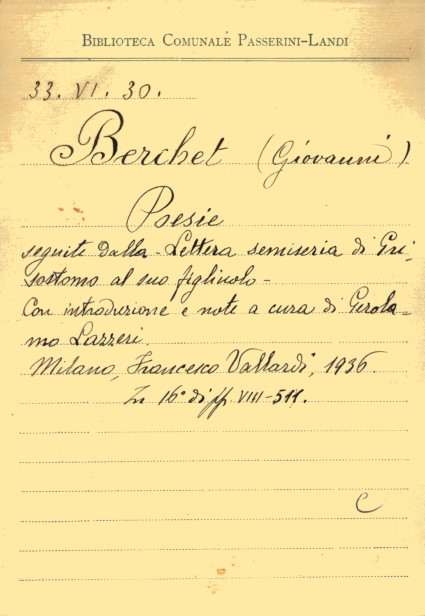 BIBLIOTECA COMUNALE PASSERINI-LANDI
33. VI. 30.
Berchet (Giovanni)
Poesie
seguite dalla - Lettera semiseria di Gri,
sostomo al suo figliuolo -
Con introduzione e note a cura di Gerola-
mo Lazzeri.
Milano, Francesco Vallardi, 1936.
In 16° di pp VIII-511.
C